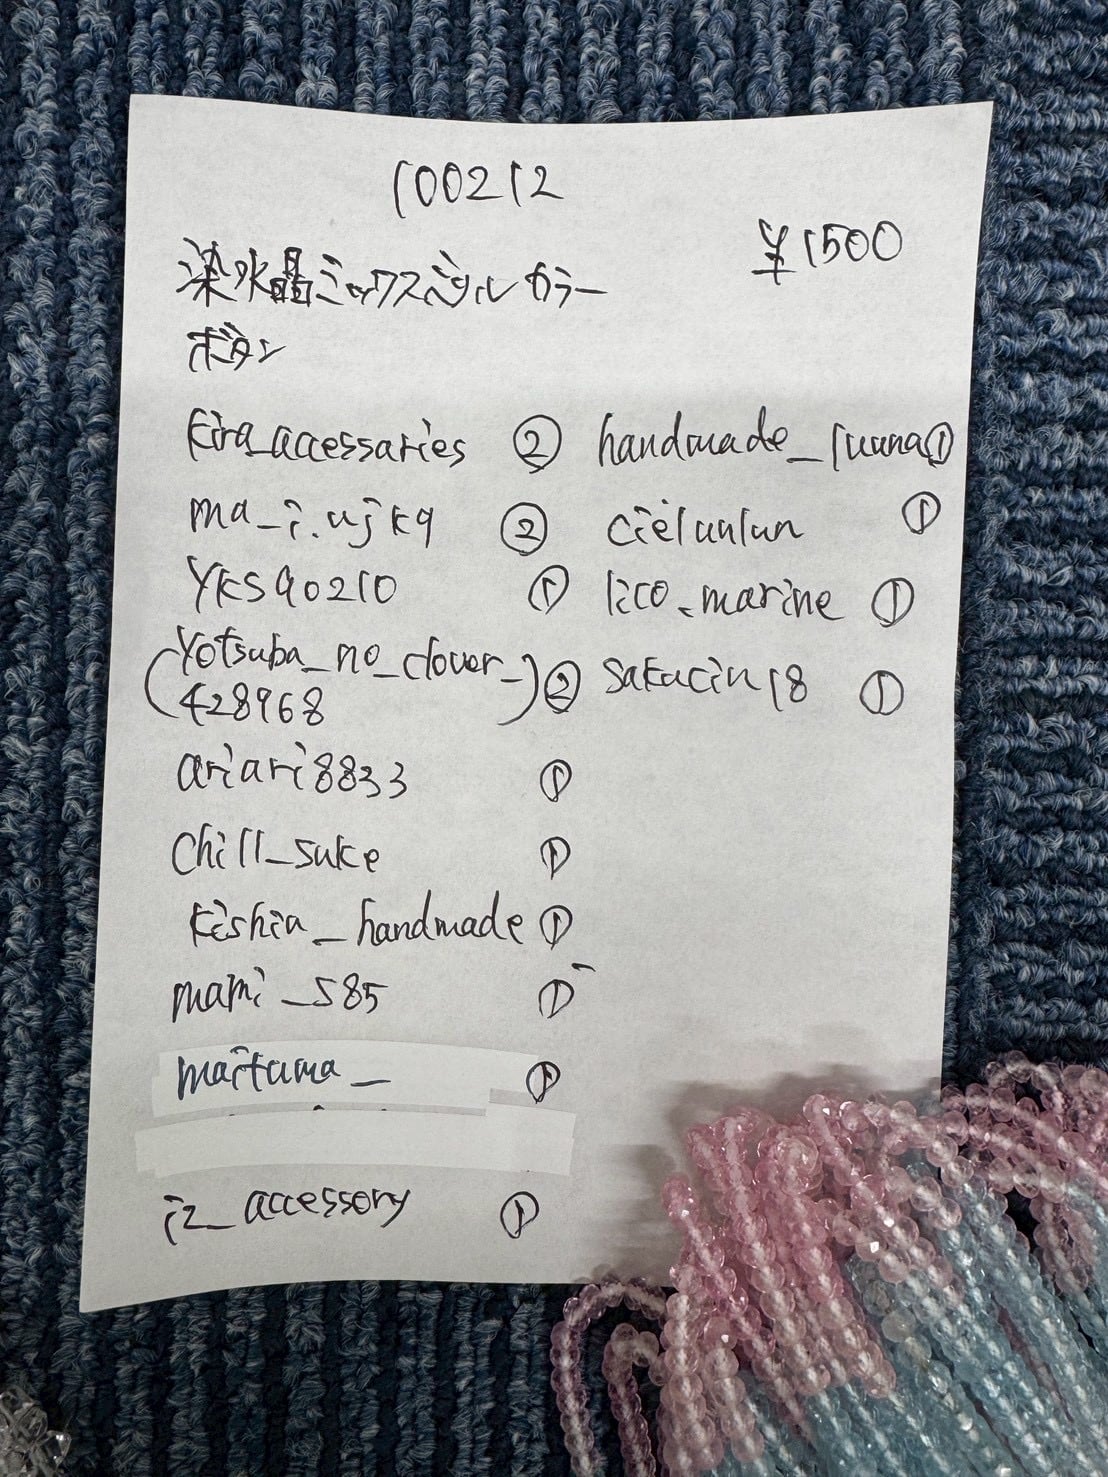 100212
¥1500
染水晶ミックスペールカラー
ボタン
kira_accessaries ②
ma_i.ujkq ②
YKS90210 ①
(yotsuba_no_clover_
428968) ②
ariari8833 ①
chill_suke ①
kishia_handmade ①
mami_585 ①
maituma_ ①
iz_accessory ①
handmade_luuna ①
cielunlun ①
lico_marine ①
sakucin18 ①